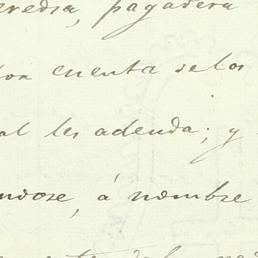 eredia, pagadera
por cuenta de los
al les adeuda; y
endose, á nombre